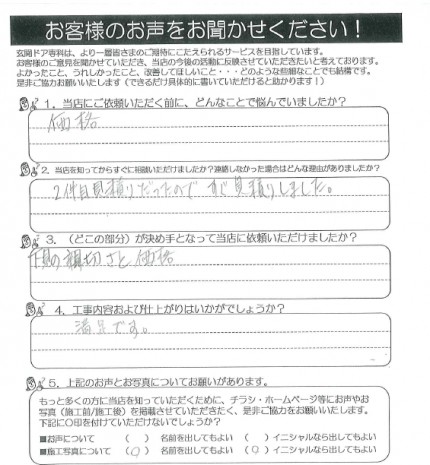 お客様のお声をお聞かせください！
玄関ドア専科は、より一層皆さまのご期待にこたえられるサービスを目指しています。
お客様のご意見を聞かせていただき、当店の今後の活動に反映させていただきたいと考えております。
よかったこと、うれしかったこと、改善してほしいこと・・・どのような些細なことでも結構です。
是非ご協力お願いいたします（できるだけ具体的に書いていただけると助かります！）
1．当店にご依頼いただく前に、どんなことで悩んでいましたか？
価格
2．当店を知ってからすぐに相談いただけましたか？連絡しなかった場合はどんな理由がありましたか？
2件目見積りだったので すぐ見積りしました。
3．（どこの部分）が決め手となって当店に依頼いただけましたか？
の親切さと価格
4．工事内容および仕上がりはいかがでしょうか？
満足です。
5．上記のお声とお写真についてお願いがあります。
もっと多くの方に当店を知っていただくために、チラシ・ホームページ等にお声やお
写真（施工前/施工後）を掲載させていただきたく、是非ご協力をお願いいたします。
下記に〇印を付けていただけないでしょうか？
■お声について （ ） 名前を出してもよい （ ）イニシャルなら出してもよい
■施工写真について （〇） 名前を出してもよい （ ）イニシャルなら出してもよい